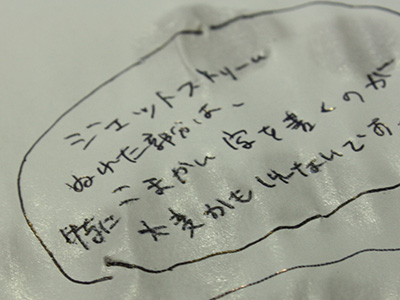 ジェットストリーム
ぬれた部分は、
特に こまかい 字を書くのが
大変かもしれないです。